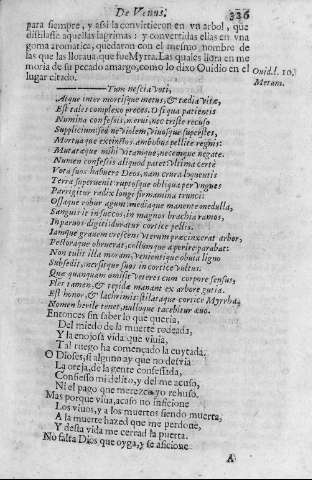 De Venus. 336
para siempre, y assi la convirtieron en vn arbol, que
distilasse aquellas lagrimas: y convertidas ellas en vna
goma aromatica, quedaron con el mesmo nombre de
las que las lloraua, que fue Myrra. Las quales llora en me
moria de su pecado amargo, como lo dixo Ouidio en el
lugar citado.
Ouid. l. 10.
Metam.
Tum nescia voti,
Atque inter mortisque metus, & tædia vitæ,
Est tales complexa preces. O si qua patentis
Numina confessis, merui, nec triste recuso
Supplicium: sed ne violem, viuosque superstes,
Mortuaque extinctos, ambobus pellite regnis:
Mutatæque mihi vitamque, necemque negate.
Numen confessis aliquod patet: vltima certè
Vota suos habuere Deos, nam crura loquentis
Terra superuenit ruptosque obliqua per vngues
Porrigitur radix longi firmamina trunci:
Ossaque robur agunt: mediaque manente medulla,
Sanguis it in succos, in magnos brachia ramos,
In paruos digiti: duratur cortice pellis.
Iamque grauem crescens vterum præcinxerat arbor,
Pectoraque obruerat, collumque operire parabat:
Non tulit illa moram, venientique obuia ligno
Subsedit, mersitque suos in cortice vultus.
Quæ quanquam amisit veteres cum corpore sensus,
Flet tamen, & tepidæ manant ex arbore guttæ.
Est honor, & lachrimis: stillataque cortice Myrrha,
Nomen herile tenet, nulloque tacebitur æuo.
Entonces sin saber lo que queria,
Del miedo de la muerte rodeada,
Y la enojosa vida que viuia,
Tal ruego ha començado la cuytada.
O Dioses, si alguno ay que no desvia
La oreja, de la gente confessada,
Confiesso mi delito, y del me acuso,
Ni el pago que merezco yo rehuso.
Mas porque viua, acaso no inficione
Los viuos, y a los muertos siendo muerta,
A la muerte hazed que me perdone,
Y desta vida me cerrad la puerta.
No falta Dios que oyga, y se aficione
A